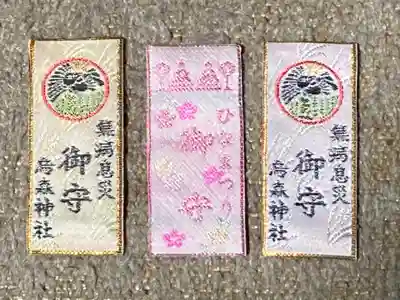 無病息災
御守
烏森神社
ひなまつり
御守
烏森神社
無病息災
御守
烏森神社